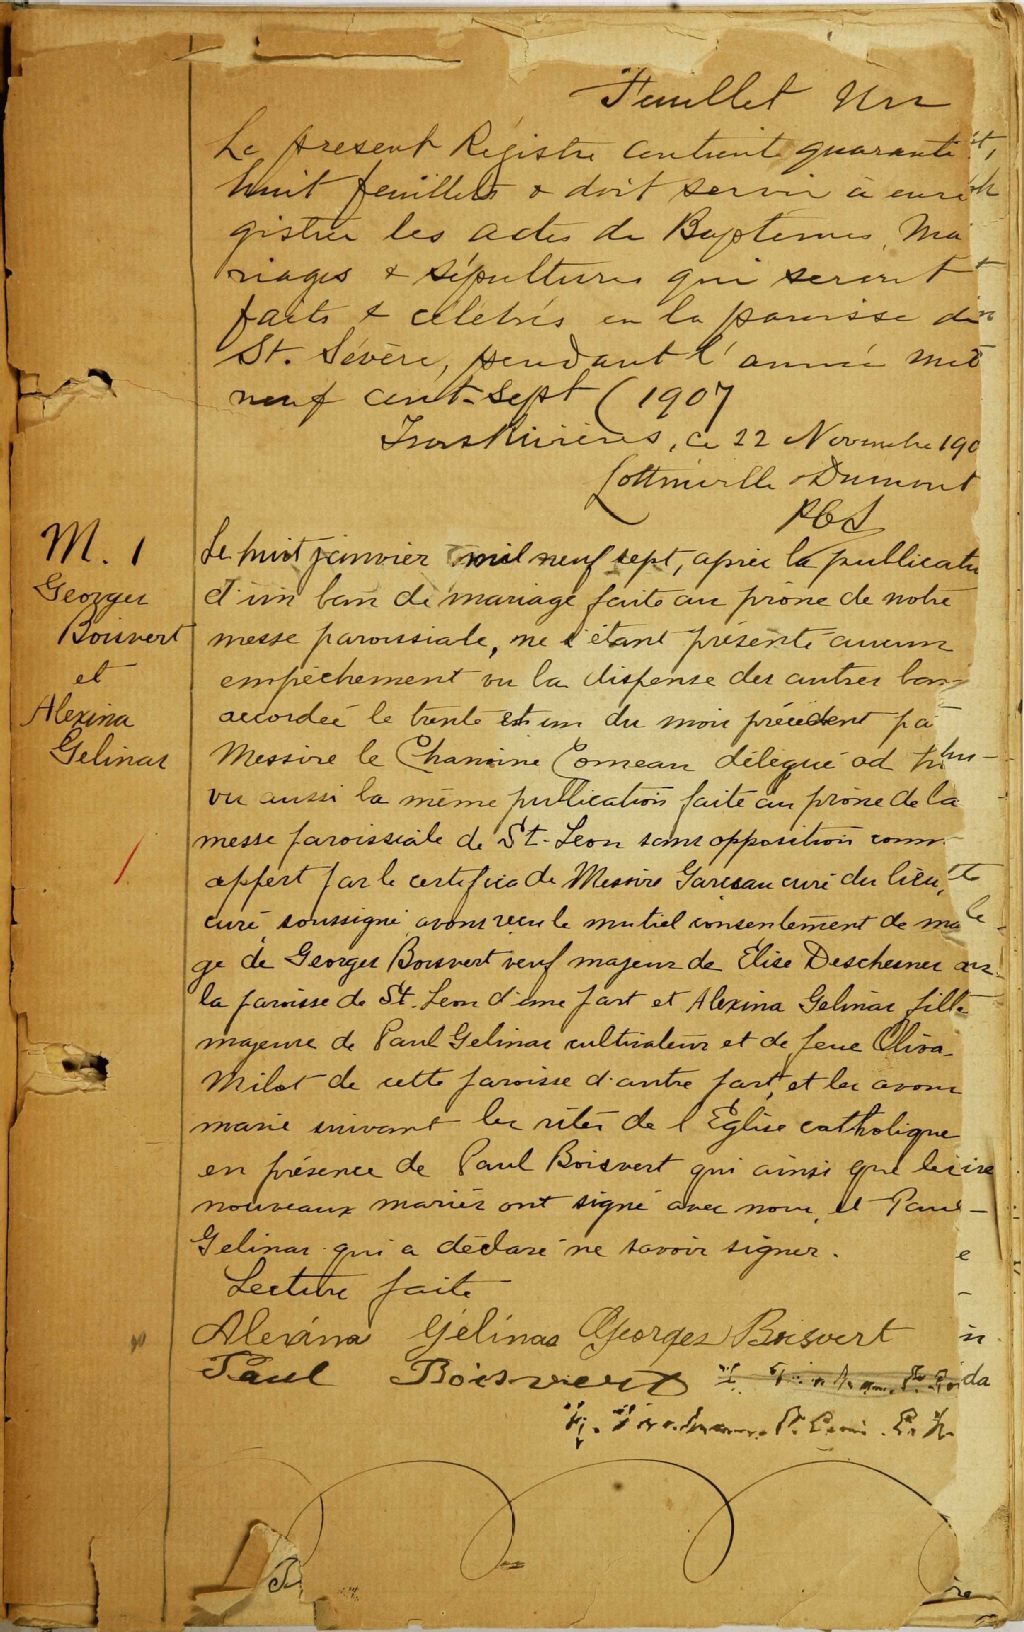 Feuillet Un
Le present Régistre contient quarante
huit feuillets & doit servir à enré
gistrer les actes de Baptêmes, Ma
riages & sépultures qui seront
faits & célébrés en la paroisse de
St. Sévère, pendant l'année mil
neuf cent-sept (1907
Trois Rivières, ce 22 Novembre 190
Lottinville & Dumont
PCS
M. 1
Georges
Boisvert
et
Alexina
Gelinas
Le huit janvier mil neuf sept, après la publicatio
d'un ban de mariage faite au prône de notre
messe paroissiale, ne s'étant présenté aucun
empêchement vu la dispense des autres bans
accordée le trente et un du mois précédent pa
Messire le Chanoine Comeau délégué ad
vu aussi la même publication faite au prône de la
messe paroissiale de St-Leon sans opposition comm
appert par le certifica de Messire Gareau curé du lieu,
curé soussigné avons reçu le mutuel consentement de ma
ge de Georges Boisvert veuf majeur de Elise Deschesnes
la paroisse de St. Leon d'une part et Alexina Gelinas fille
majeure de Paul Gelinas cultivateur et de feue Oliva
Milot de cette paroisse d'autre part, et les avons
marié suivant les rites de l'Église catholique
en présence de Paul Boisvert qui ainsi que les
nouveaux mariés ont signé avec nous, et Paul
Gelinas qui a déclaré ne savoir signer.
Lecture faite
Alexina Gélinas Georges Boisvert
Paul Boisvert